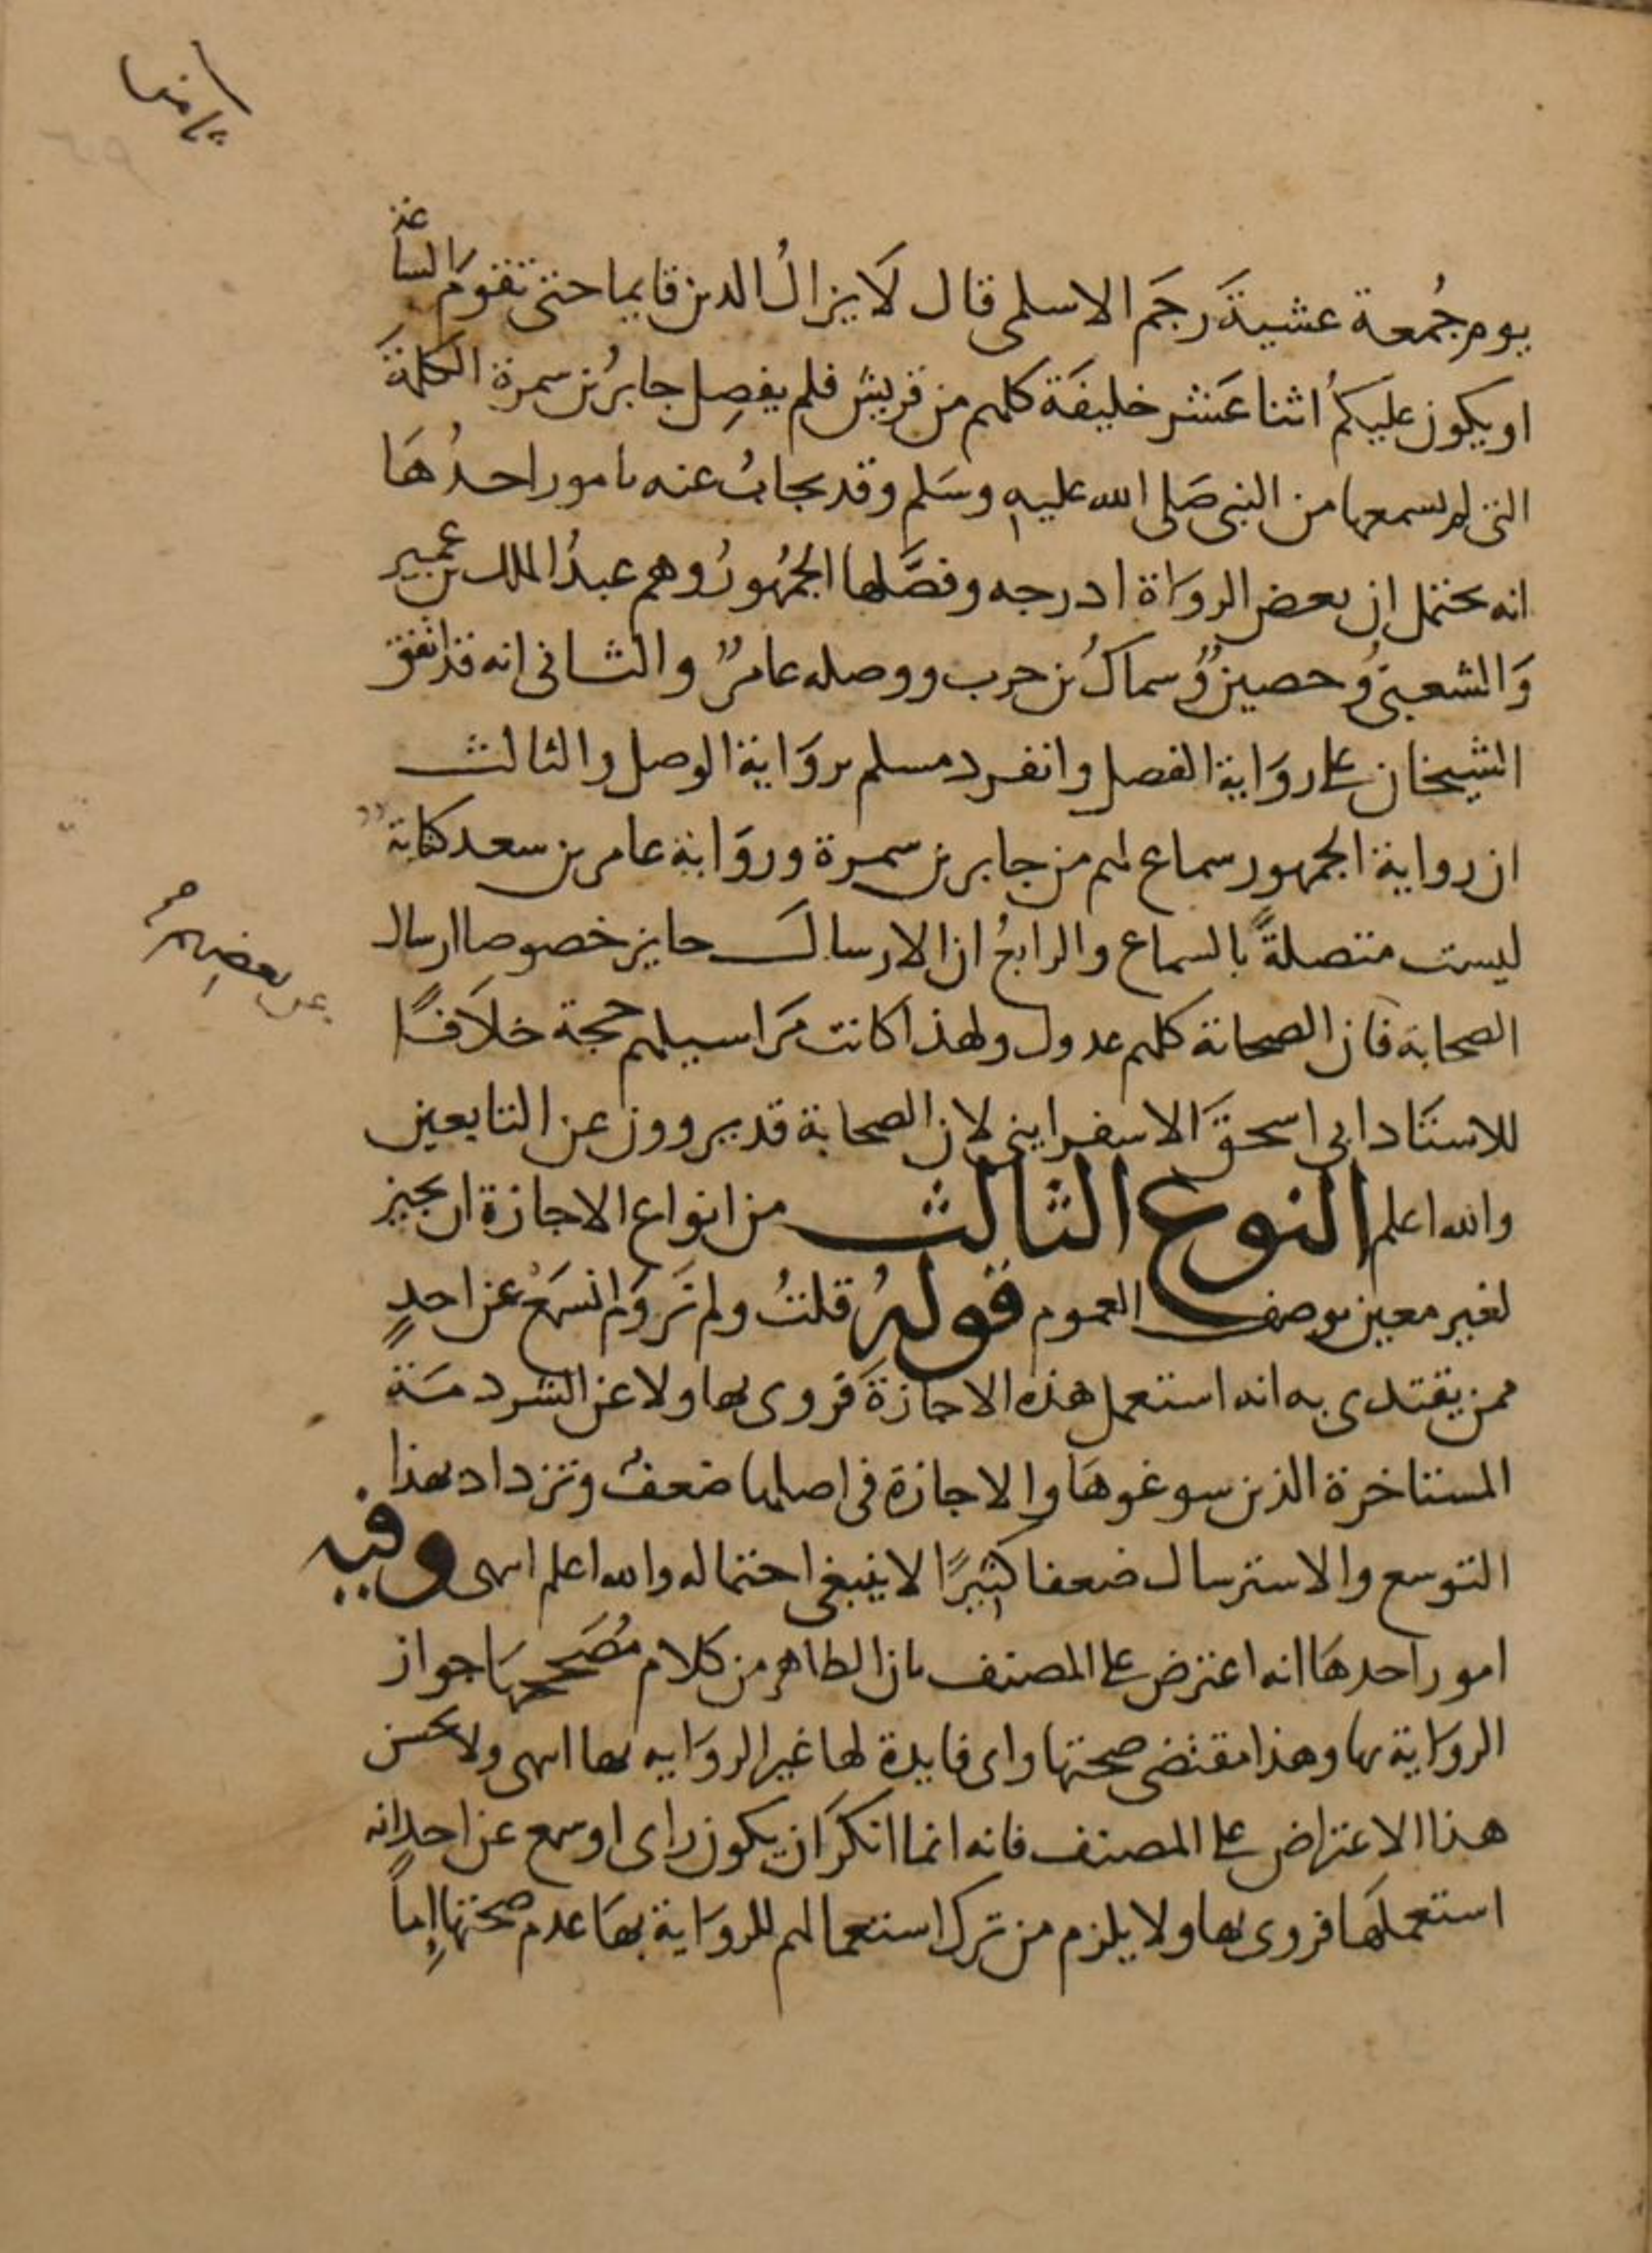 يوم جُمعة عشيةَ رجَم الاسلمي قال لَا يزالُ الدين قايما حتى تقومَ الساعة
او يكون عليكمُ اثنا عَشر خليفَة كلهم من قريش فلم يفصِل جابرُ بن سمرة الكلمةَ
التي لم يسمعها من النبي صَلى الله عليه وسَلم وقد يجابُ عنه بامور احدُهَا
انه يحتمل ان بعض الروَاة ادرجه وفصَّلها الجمُهورُ وهم عبدُ الملك بن عمير
وَالشعبيُ وحصينٌ وُسماكُ بن حرب ووصله عامرٌ والثاني انه قد اتفق
الشيخان على روَاية الفصل وانفرد مسلم بروَاية الوصل والثالث
ان رواية الجمهور سماع لهم من جابر بن سمرة وروَاية عامر بن سعد كتابة
ليست متصلةً بالسماع والرابعُ ان الارسال جايز خصوصا ارسال
الصحابة فان الصحابة كلهم عدول ولهذا كانت مَراسيلهم حجة خلَافًا
للاستَاد ابي اسحقَ الاسفرايني لان الصحابة قد يروون عن التابعين
والله اعلم النوع الثالث من انواع الاجازة ان يجيز
لغير معين بوصف العموم قولهُ قلتُ ولم نَر وَلم نسمَعْ عن احدٍ
ممن يقتدى به انه استعمل هذه الاجازةَ فروى بها ولا عن الشردمَة
المستاخرة الذين سوغوهَا والاجازة في اصلها ضعفٌ وتزداد بهذا
التوسع والاسترسال ضعفا كثيرًا لا ينبغي احتماله والله اعلم انتهى وفيه
امور احدهَا انه اعترض على المصنف بان الظاهر من كلام مُصَححهَا جواز
الروَاية بها وهذا مقتضى صحتها واى فايدة لها غير الروَايه بها انتهى ولا يحسن
هذا الاعتراض على المصنف فانه انما انكرَ ان يكون راى او سمع عن احدٍ انه
استعملهَا فروى بها ولا يلزم من ترك استعمالهم للروَاية بهَا عدم صحتها إِماً
عن بعضهم